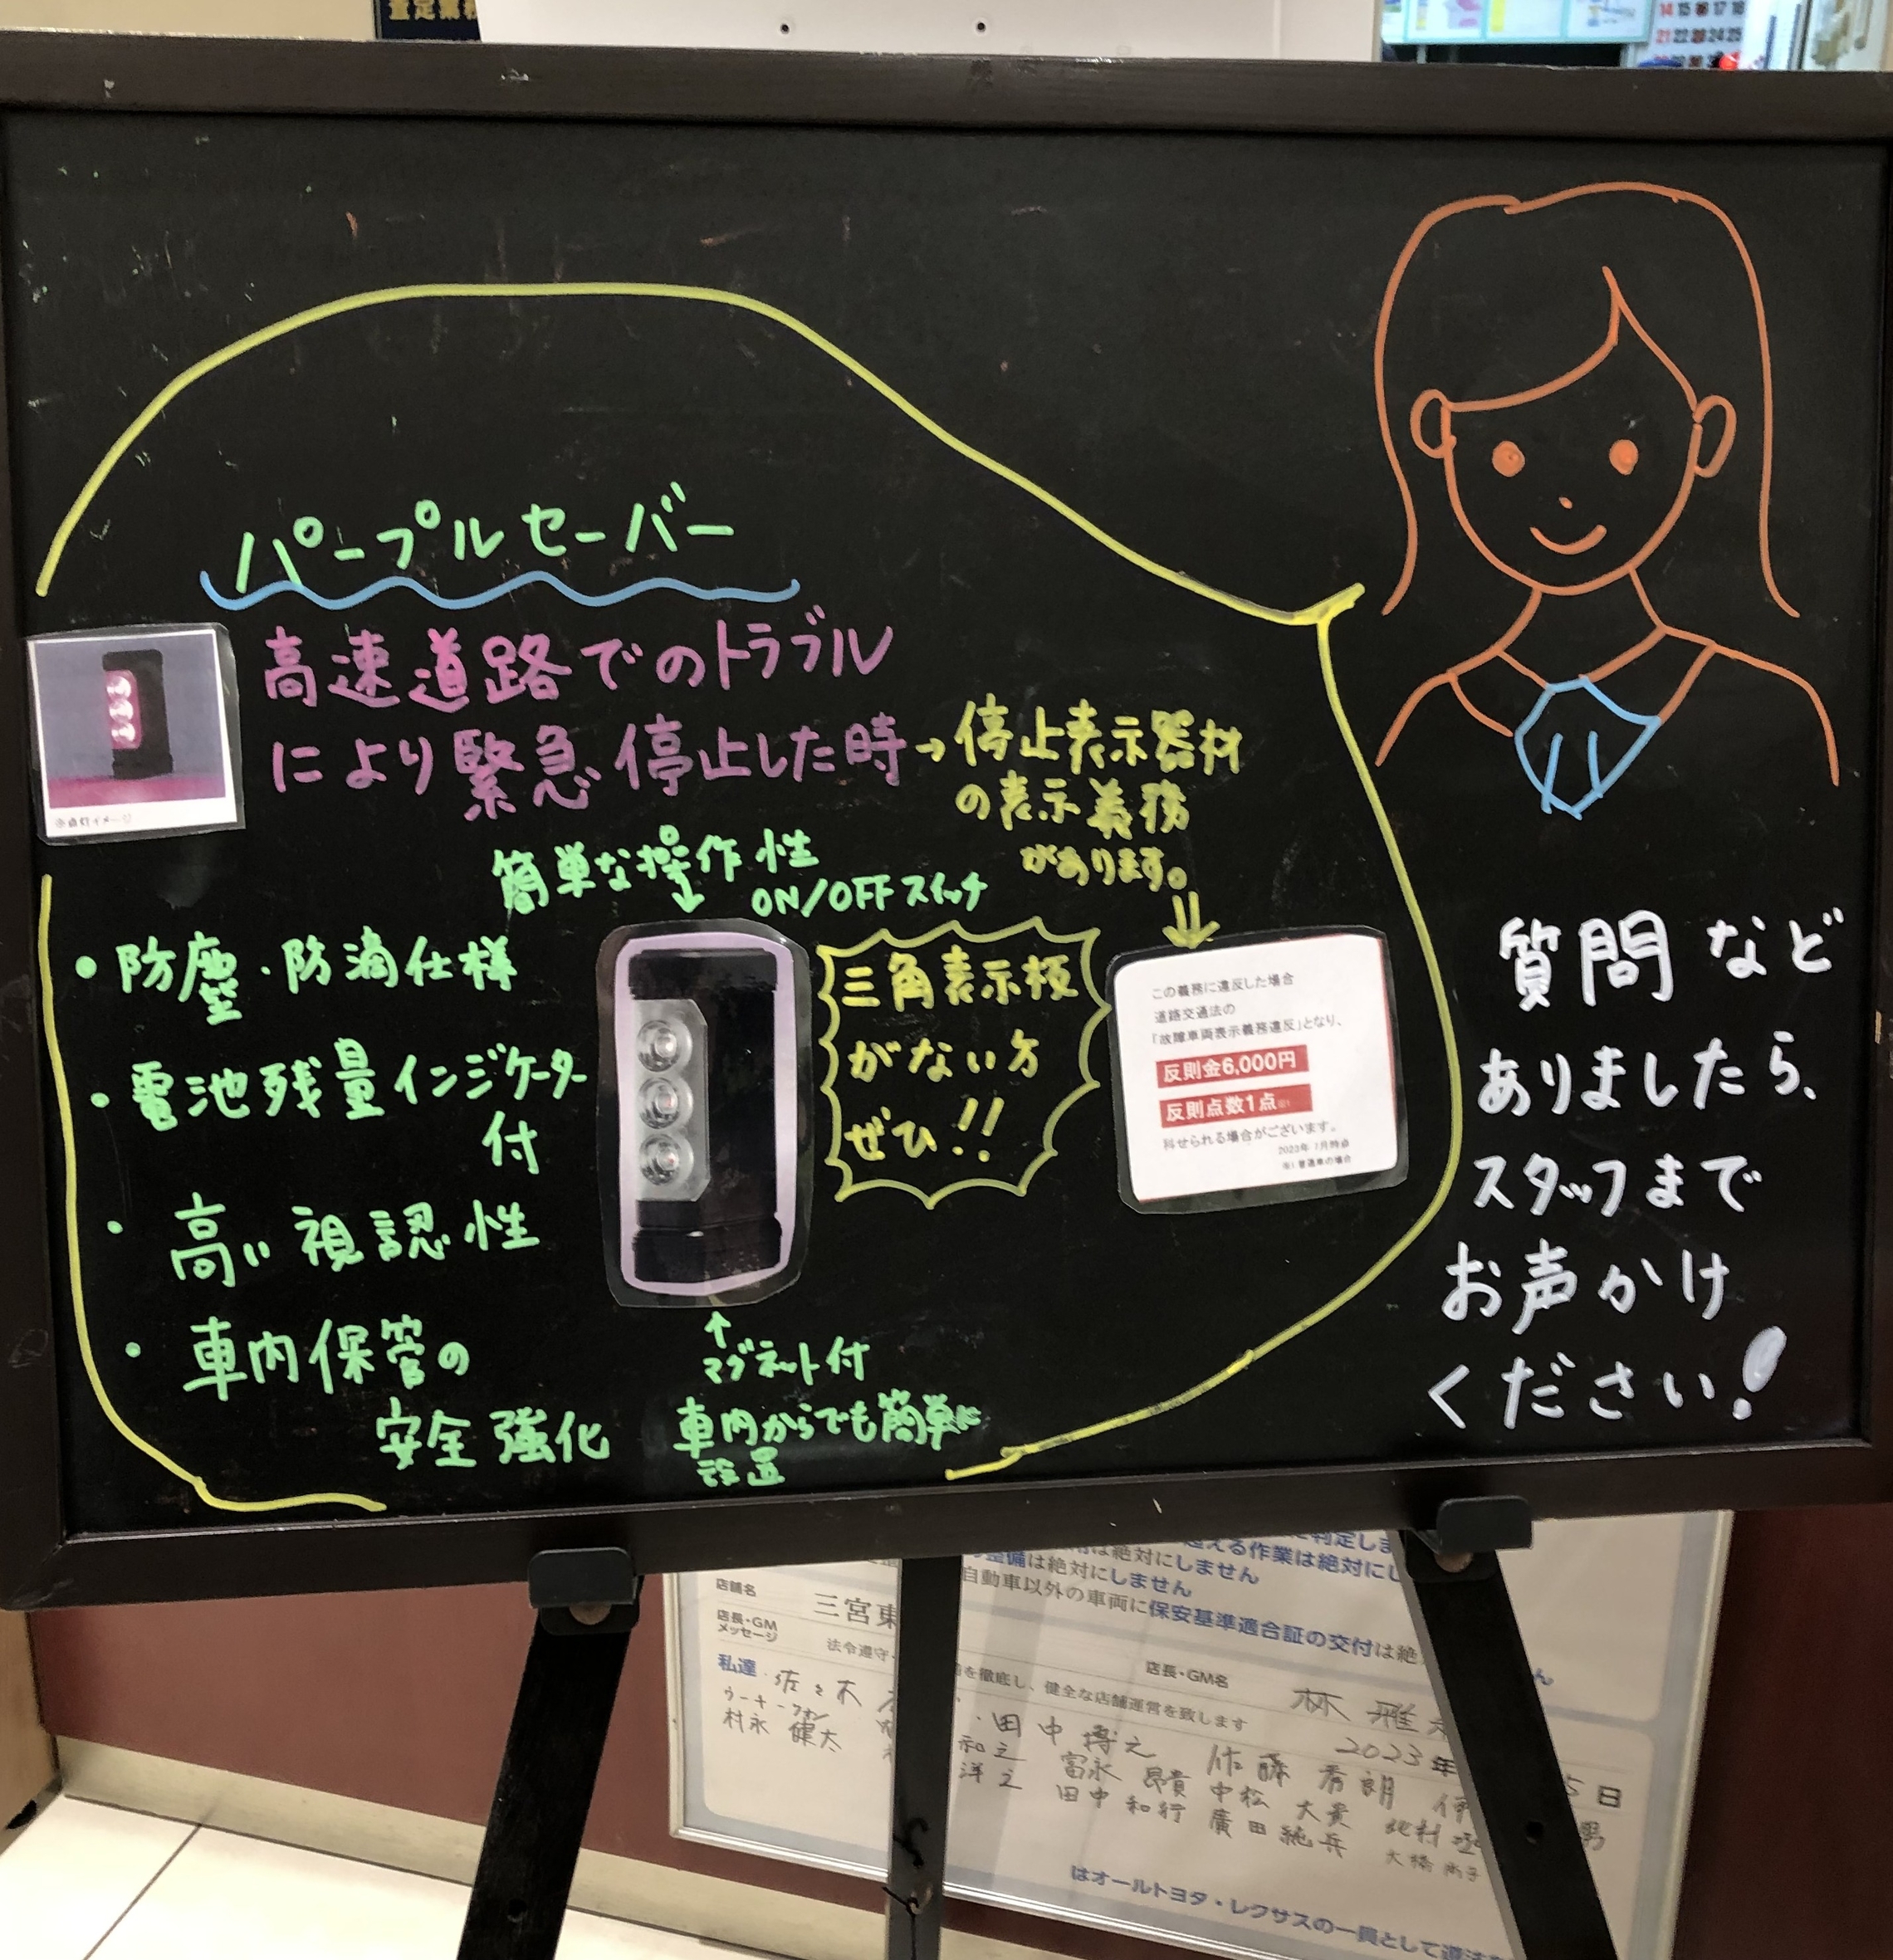 パープルセーバー
高速道路でのトラブル
により緊急停止した時→停止表示器材
の表示義務
があります。
※点灯イメージ
簡単な操作性
ON/OFFスイッチ
・防塵・防滴仕様
・電池残量インジケーター
付
・高い視認性
・車内保管の
安全強化
三角表示板
がない方
ぜひ!!
この義務に違反した場合
道路交通法の
「故障車両表示義務違反」となり、
反則金6,000円
反則点数1点※1
科せられる場合がございます。
2023年7月時点
※1 普通車の場合
マグネット付
車内からでも簡単に
設置
質問など
ありましたら、
スタッフまで
お声かけ
ください!
超える作業は絶対に
整備は絶対にしません
自動車以外の車両に保安基準適合証の交付は絶
店舗名
三宮東
店長・GM
メッセージ
法令遵守
を徹底し、健全な店舗運営を致します
店長・GM名
林 雅
2023年
5日
私達
佐々木
ウーキーフォン
村永 健太
田中 博之
佐藤 秀朗
和之
富永 昂貴
中松 大貴
北村
洋之
田中 和行
廣田 純兵
大橋
はオールトヨタ・レクサスの一員として遵法